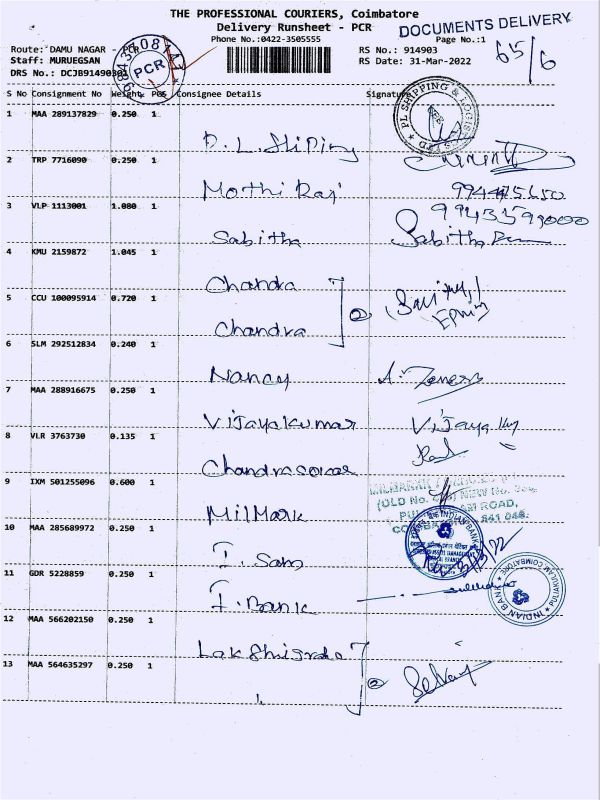 THE PROFESSIONAL COURIERS, Coimbatore
Delivery Runsheet - PCR
DOCUMENTS DELIVERY
Phone No.:0422-3505555
Page No.:1
65/6
Route: DAMU NAGAR - PCR
RS No.: 914903
Staff: MURUEGSAN
RS Date: 31-Mar-2022
DRS No.: DCJB91490302
PCR
S No Consignment No Weight PCS Consignee Details Signature
PL SHIPPING & LOGISTICS
1 MAA 289137829 0.250 1
P. L. Shiping
2 TRP 7716090 0.250 1
Mothi Raj
3 VLP 1113001 1.080 1
9943593000
Sabitha Sabitha
4 KMU 2159872 1.045 1
Chandra
5 CCU 100095914 0.720 1
Chandra
6 SLM 292512834 0.240 1
Nancy
7 MAA 288916675 0.250 1
Vijayakumar Vijaya
8 VLR 3763730 0.135 1
Chandrasekar
9 IXM 501255096 0.600 1
(OLD No. NEW No.
ROAD,
641 045.
MilMark
10 MAA 285689972 0.250 1
INDIAN BANK
I. Sam
11 GDR 5228859 0.250 1
I. Bank
INDIAN BANK PULIAKULAM COIMBATORE
12 MAA 566202150 0.250 1
13 MAA 564635297 0.250 1
Selvaj